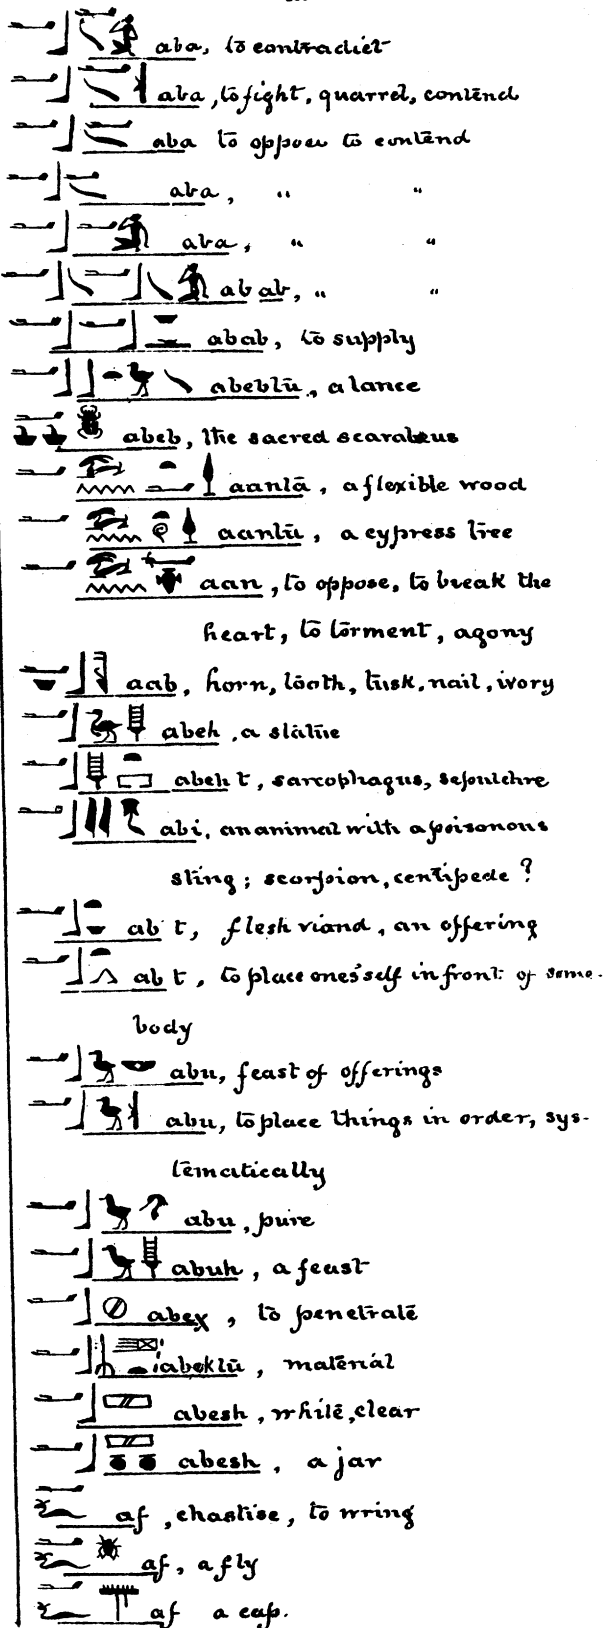 aba, to contradict
aba, to fight, quarrel, contend
aba to oppose to contend
aba, " "
aba, " "
abab, " "
abab, to supply
abebtu, a lance
abeb, the sacred scarabeus
aanta, a flexible wood
aantu, a cypress tree
aan, to oppose, to break the
heart, to torment, agony
aab, horn, tooth, tusk, nail, ivory
abeh, a statue
abeh t, sarcophagus, sepulchre
abi, an animal with a poisonous
sting; scorpion, centipede?
ab t, flesh viand, an offering
ab t, to place one's self in front of some-
body
abu, feast of offerings
abu, to place things in order, sys-
tematically
abu, pure
abuh, a feast
abex, to penetrate
abektu, material
abesh, white, clear
abesh, a jar
af, chastise, to wring
af, a fly
af a cap.